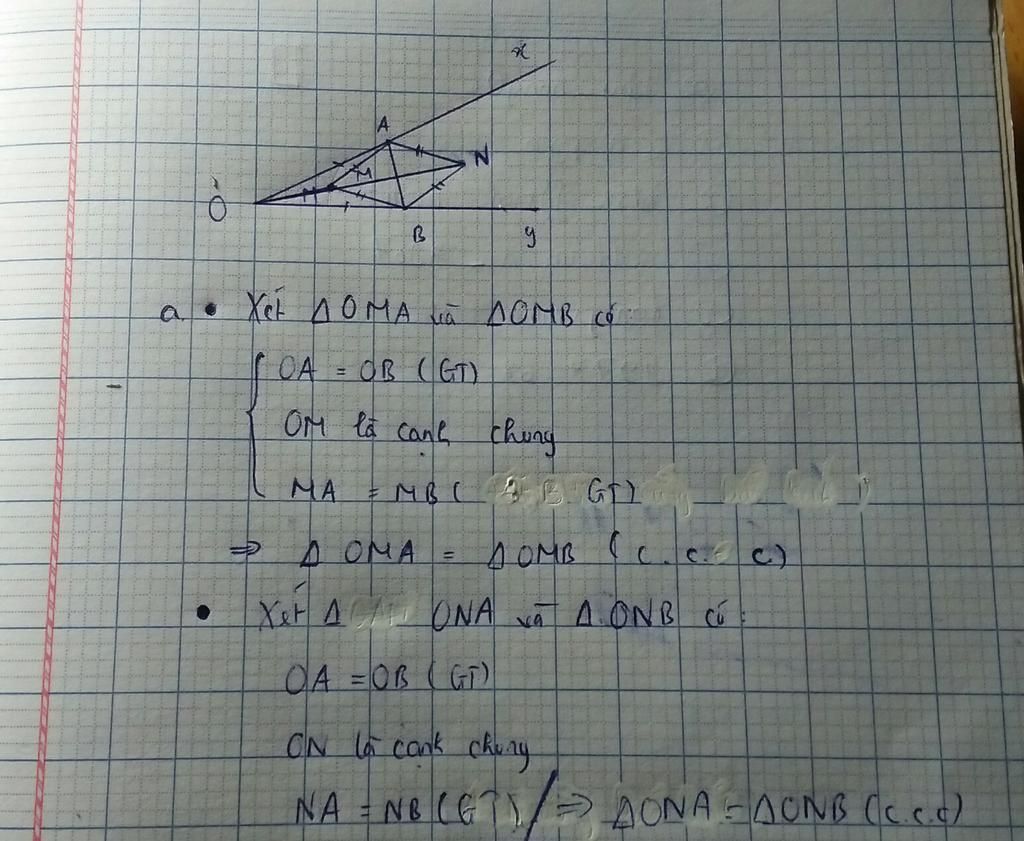 x
A
N
M
O
B
y
a. • Xét Δ OMA và Δ OMB có:
OA = OB (GT)
OM là cạnh chung
MA = MB ( GT)
⇒ Δ OMA = Δ OMB (c.c.c)
• Xét Δ ONA và Δ ONB có:
OA = OB (GT)
ON là cạnh chung
NA = NB (GT) / ⇒ ΔONA = ΔONB (c.c.c)